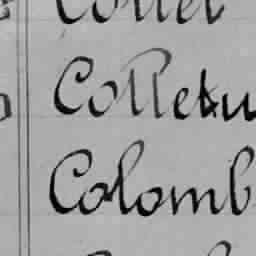 Collet
Colletu
Colomb